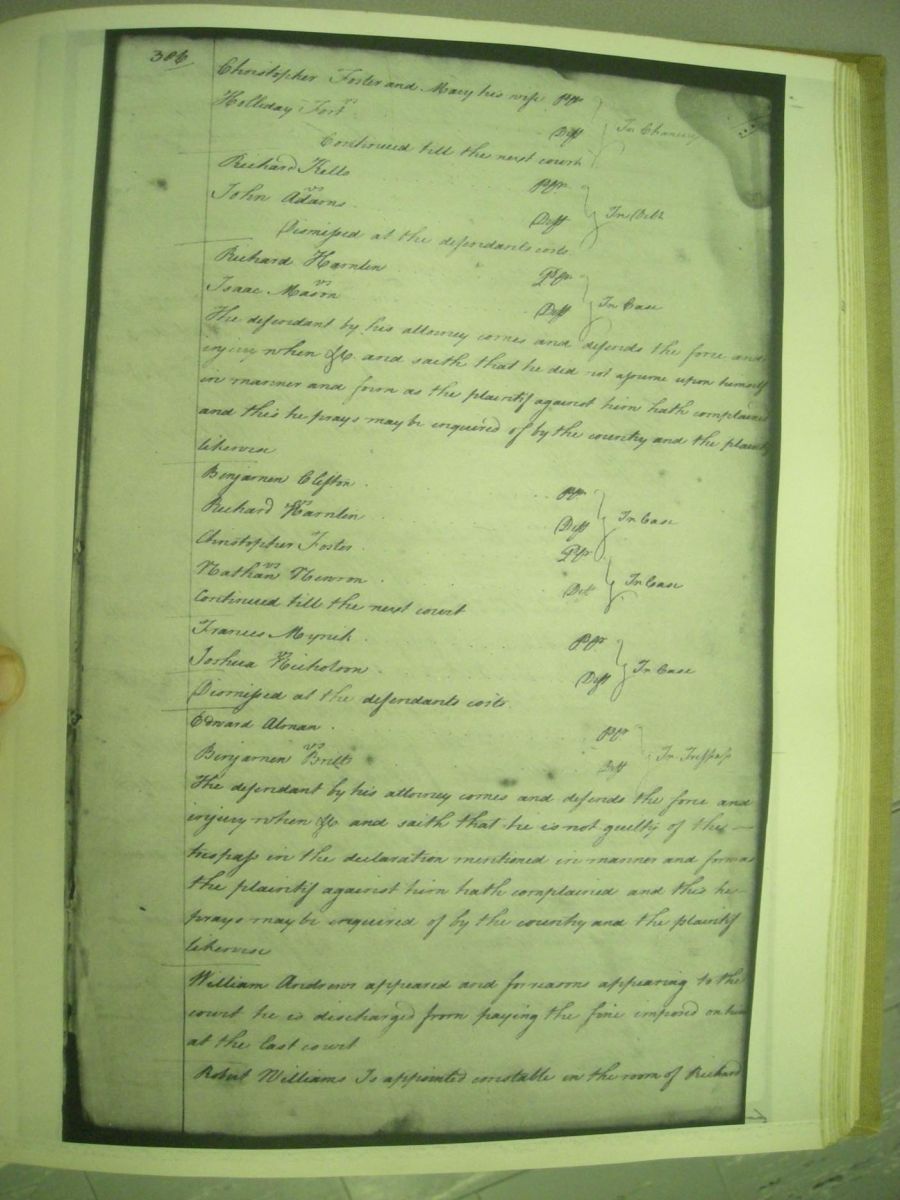 386
Christopher Foster and Mary his wife Plfs
vs
Holliday Fort Deft } In Chancery
Continued till the next court
Richard Kello Plfr
vs
John Adams Deft } In Debt
Dismissed at the defendants costs
Richard Hamlin Plfr
vs
Isaac Mason Deft } In Case
The defendant by his attorney comes and defends the force and
injury when &c and saith that he did not assume upon himself
in manner and form as the plaintif against him hath complained
and this he prays may be enquired of by the country and the plaintif
likewise
Benjamen Clifton Plfr
vs
Richard Hamlin Deft } In Case
Christopher Foster Plfr
vs
Nathan Newson Deft } In Case
Continued till the next court
Frances Myrick Plfr
vs
Joshua Nicholson Deft } In Case
Dismissed at the defendants costs
Edward Alman Plfr
vs
Benjamen Britt Deft } In Trespass
The defendant by his attorney comes and defends the force and
injury when &c and saith that he is not guilty of the
trespass in the declaration mentioned in manner and form as
the plaintif against him hath complained and this he
prays may be enquired of by the country and the plaintif
likewise
William Andrews appeared and for reasons appearing to the
court he is discharged from paying the fine imposed on him
at the last court
Robert Williams Is appointed constable in the room of Richard